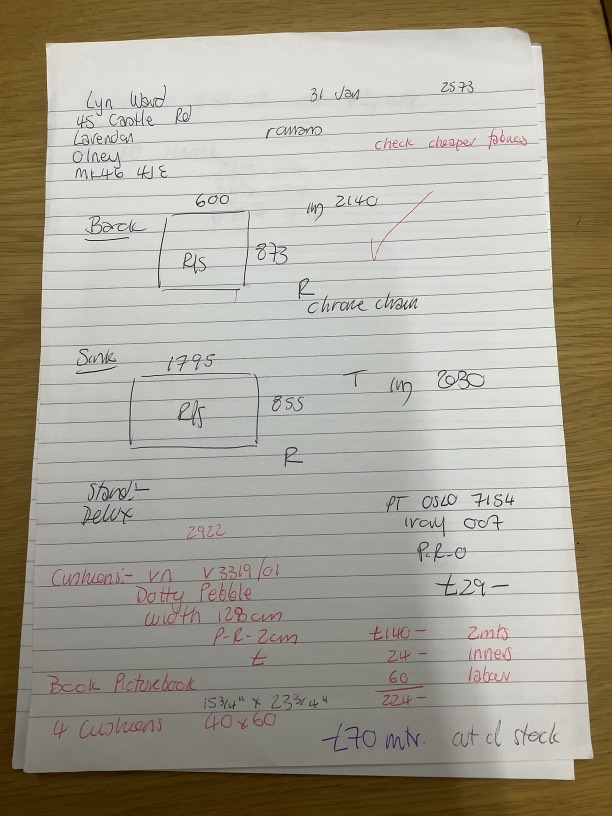 Lyn Ward 31 Jan 2573
45 Castle Rd
Lavendon romans
Olney check cheaper fabrics
MK46 4JE
600 in 2140
Back
R/S 873
R
chrome chain
Sink 1795
T in 2030
R/S 855
R
Stand:-
Delux
PT OSLO 7154
Ivory 007
P-R-O
£29-
2922
Cushions:- vn V3319/01
Dotty Pebble
width 128cm
P-R-2cm £140- 2mts
24- inners
Book Picturebook 60 labour
15 3/4" x 23 3/4" 224-
4 Cushions 40x60
£70 mtr. out of stock